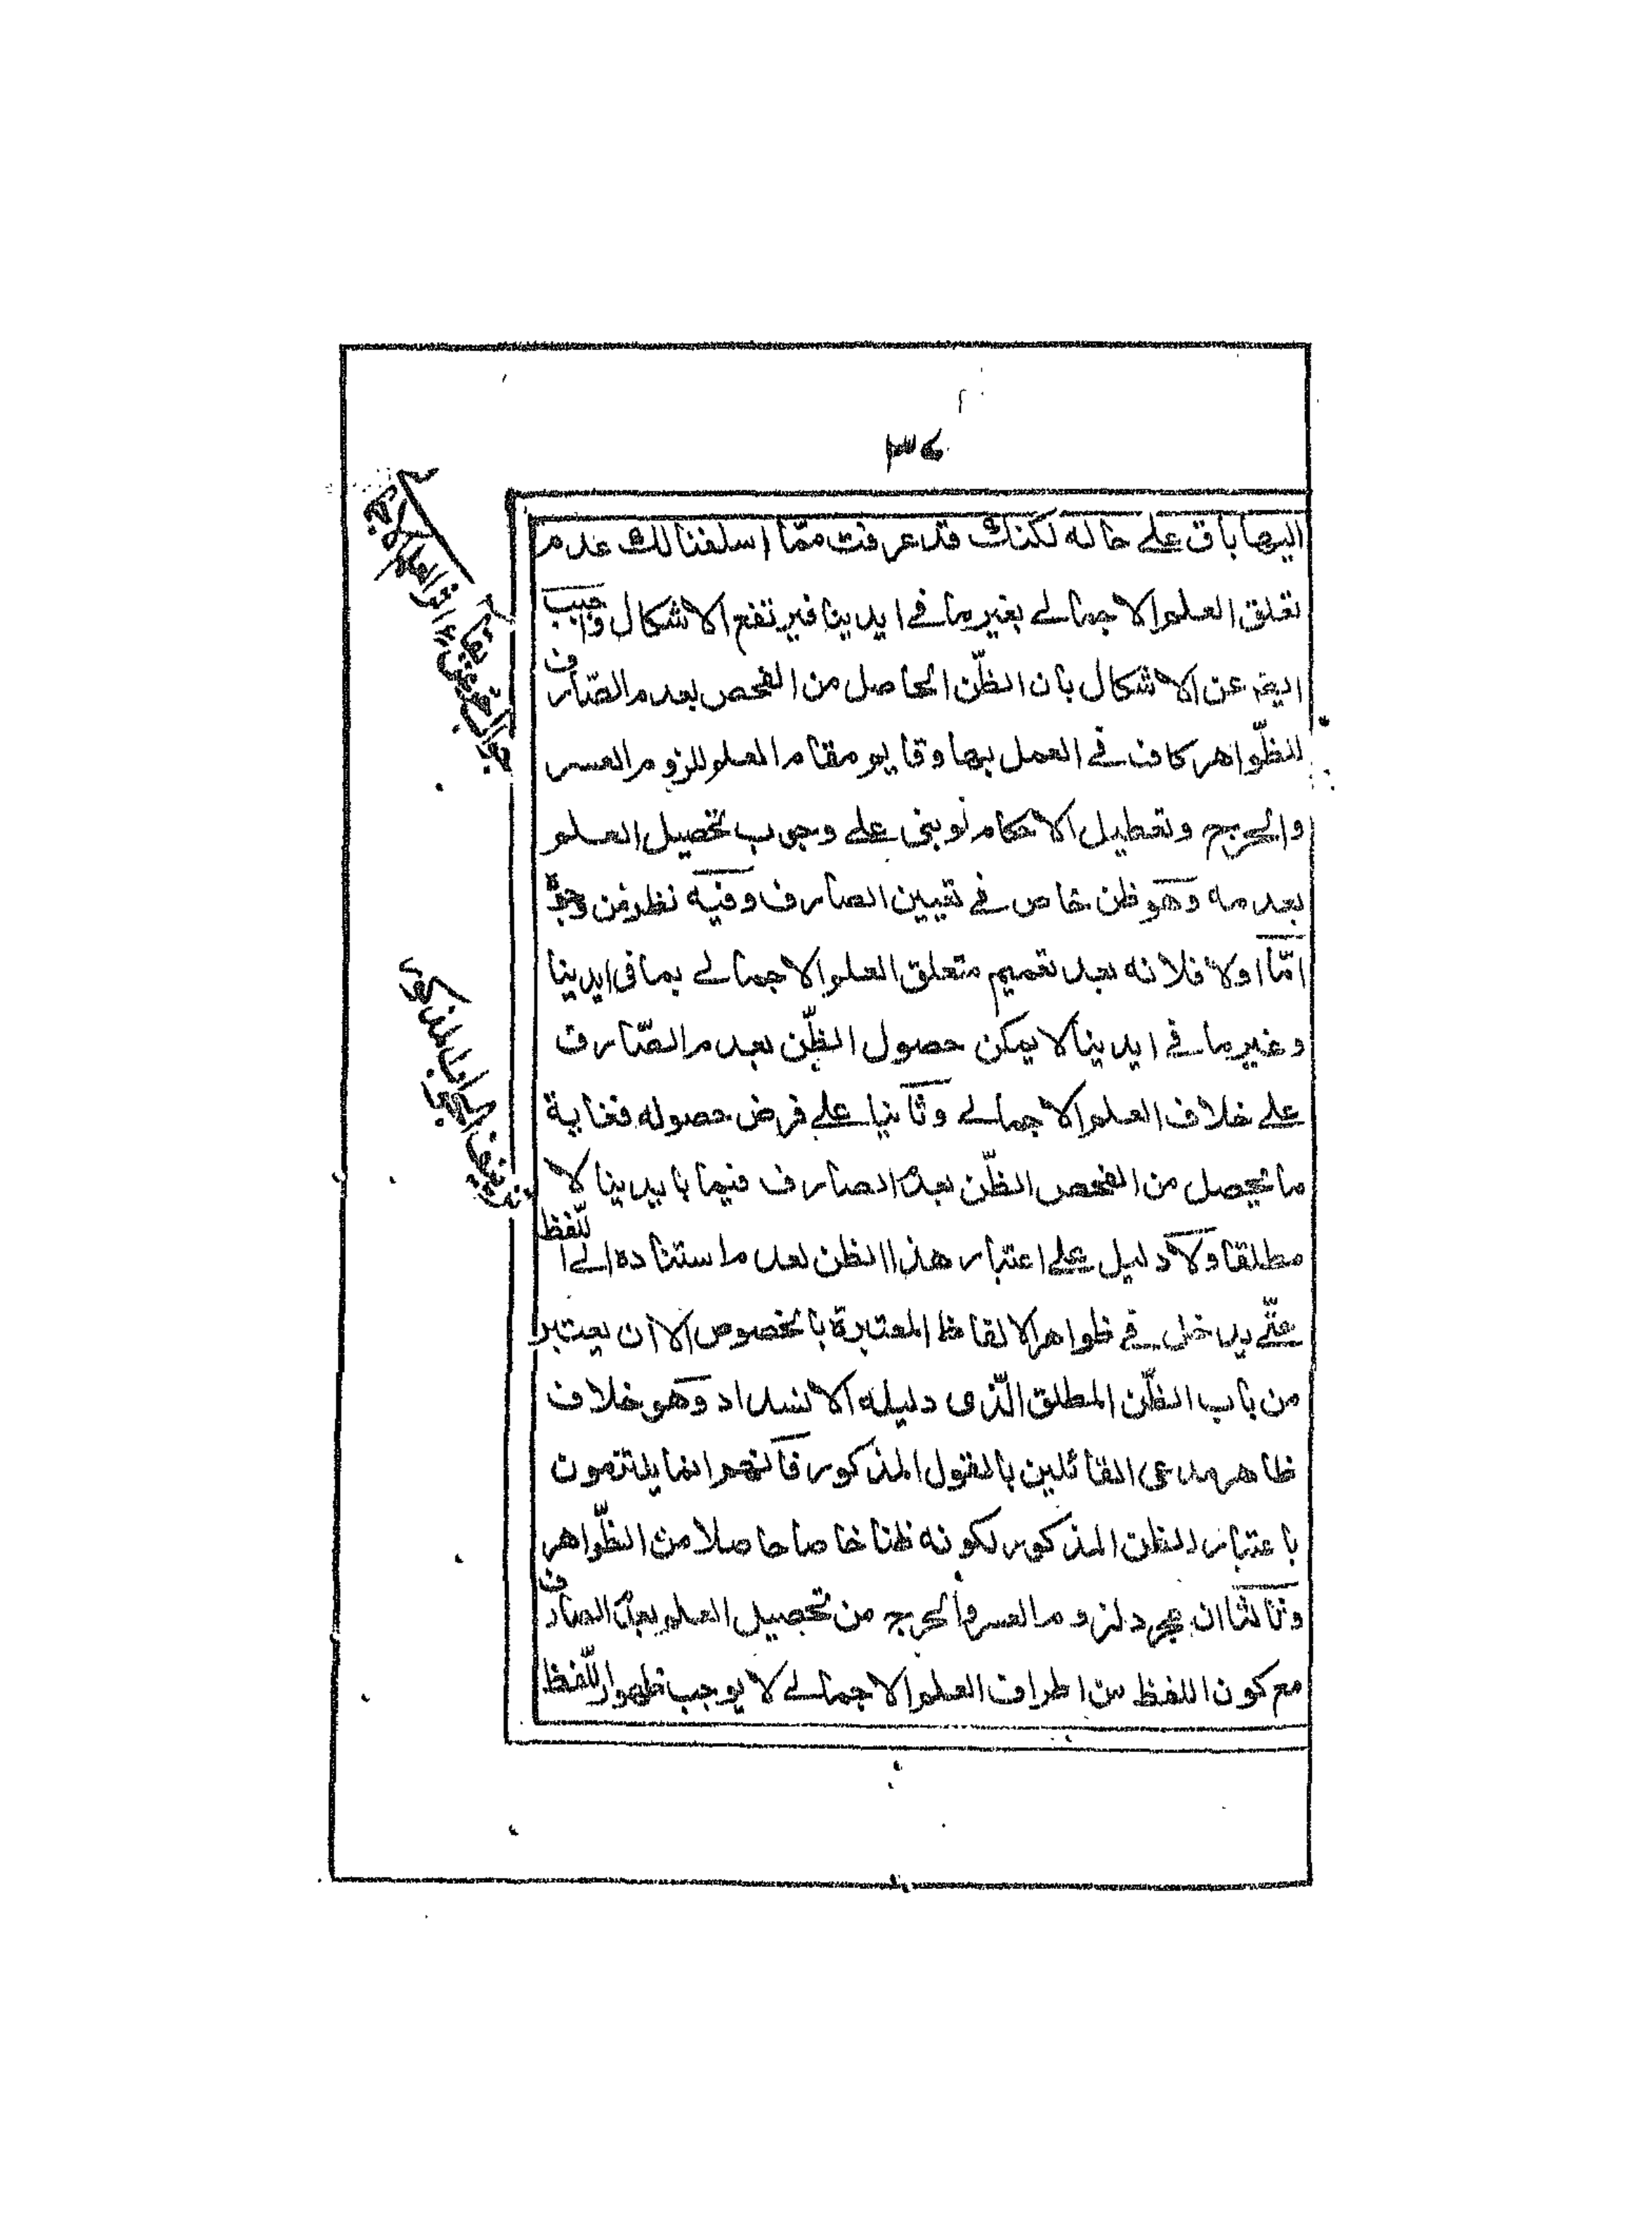 ٣٤
اليها باق على حاله لكنك قد عرفت ممّا اسلفنا لك عدم
تعلق العلم الاجمالے بغير ما فے ايدينا فيرتفع الاشكال واجيب
ايضا عن الاشكال بان الظّن الحاصل من الفحص بعدم الصّارف
للظّواهر كاف فے العمل بها وقايم مقام العلم للزوم العسر
والحرج وتعطيل الاحكام لو بنى على وجوب تحصيل العلم
بعدمه وهو ظن خاص فے تعيين الصارف وفيه نظر من وجوه
امّا اولا فلانه بعد تعميم متعلق العلم الاجمالے بما فى ايدينا
وغير ما فے ايدينا لا يمكن حصول الظّن بعدم الصّارف
على خلاف العلم الاجمالے وثانيا على فرض حصوله فغاية
ما يحصل من الفحص الظّن بعدم الصارف فيما بايدينا لا
مطلقا ولا دليل على اعتبار هذا الظن لعدم استناده الے اللّفظ
حتّے يدخل فے ظواهر الالفاظ المعتبرة بالخصوص الا ان يعتبر
من باب الظّن المطلق الّذى دليله الانسداد وهو خلاف
ظاهر مدعى القائلين بالقول المذكور فانهم انما يلتزمون
باعتبار الظن المذكور لكونه ظنا خاصا حاصلا من الظّواهر
وثالثا ان مجرد لزوم العسر والحرج من تحصيل العلم بعدم الصارف
مع كون اللفظ من اطراف العلم الاجمالے لا يوجب ظهور اللّفظ